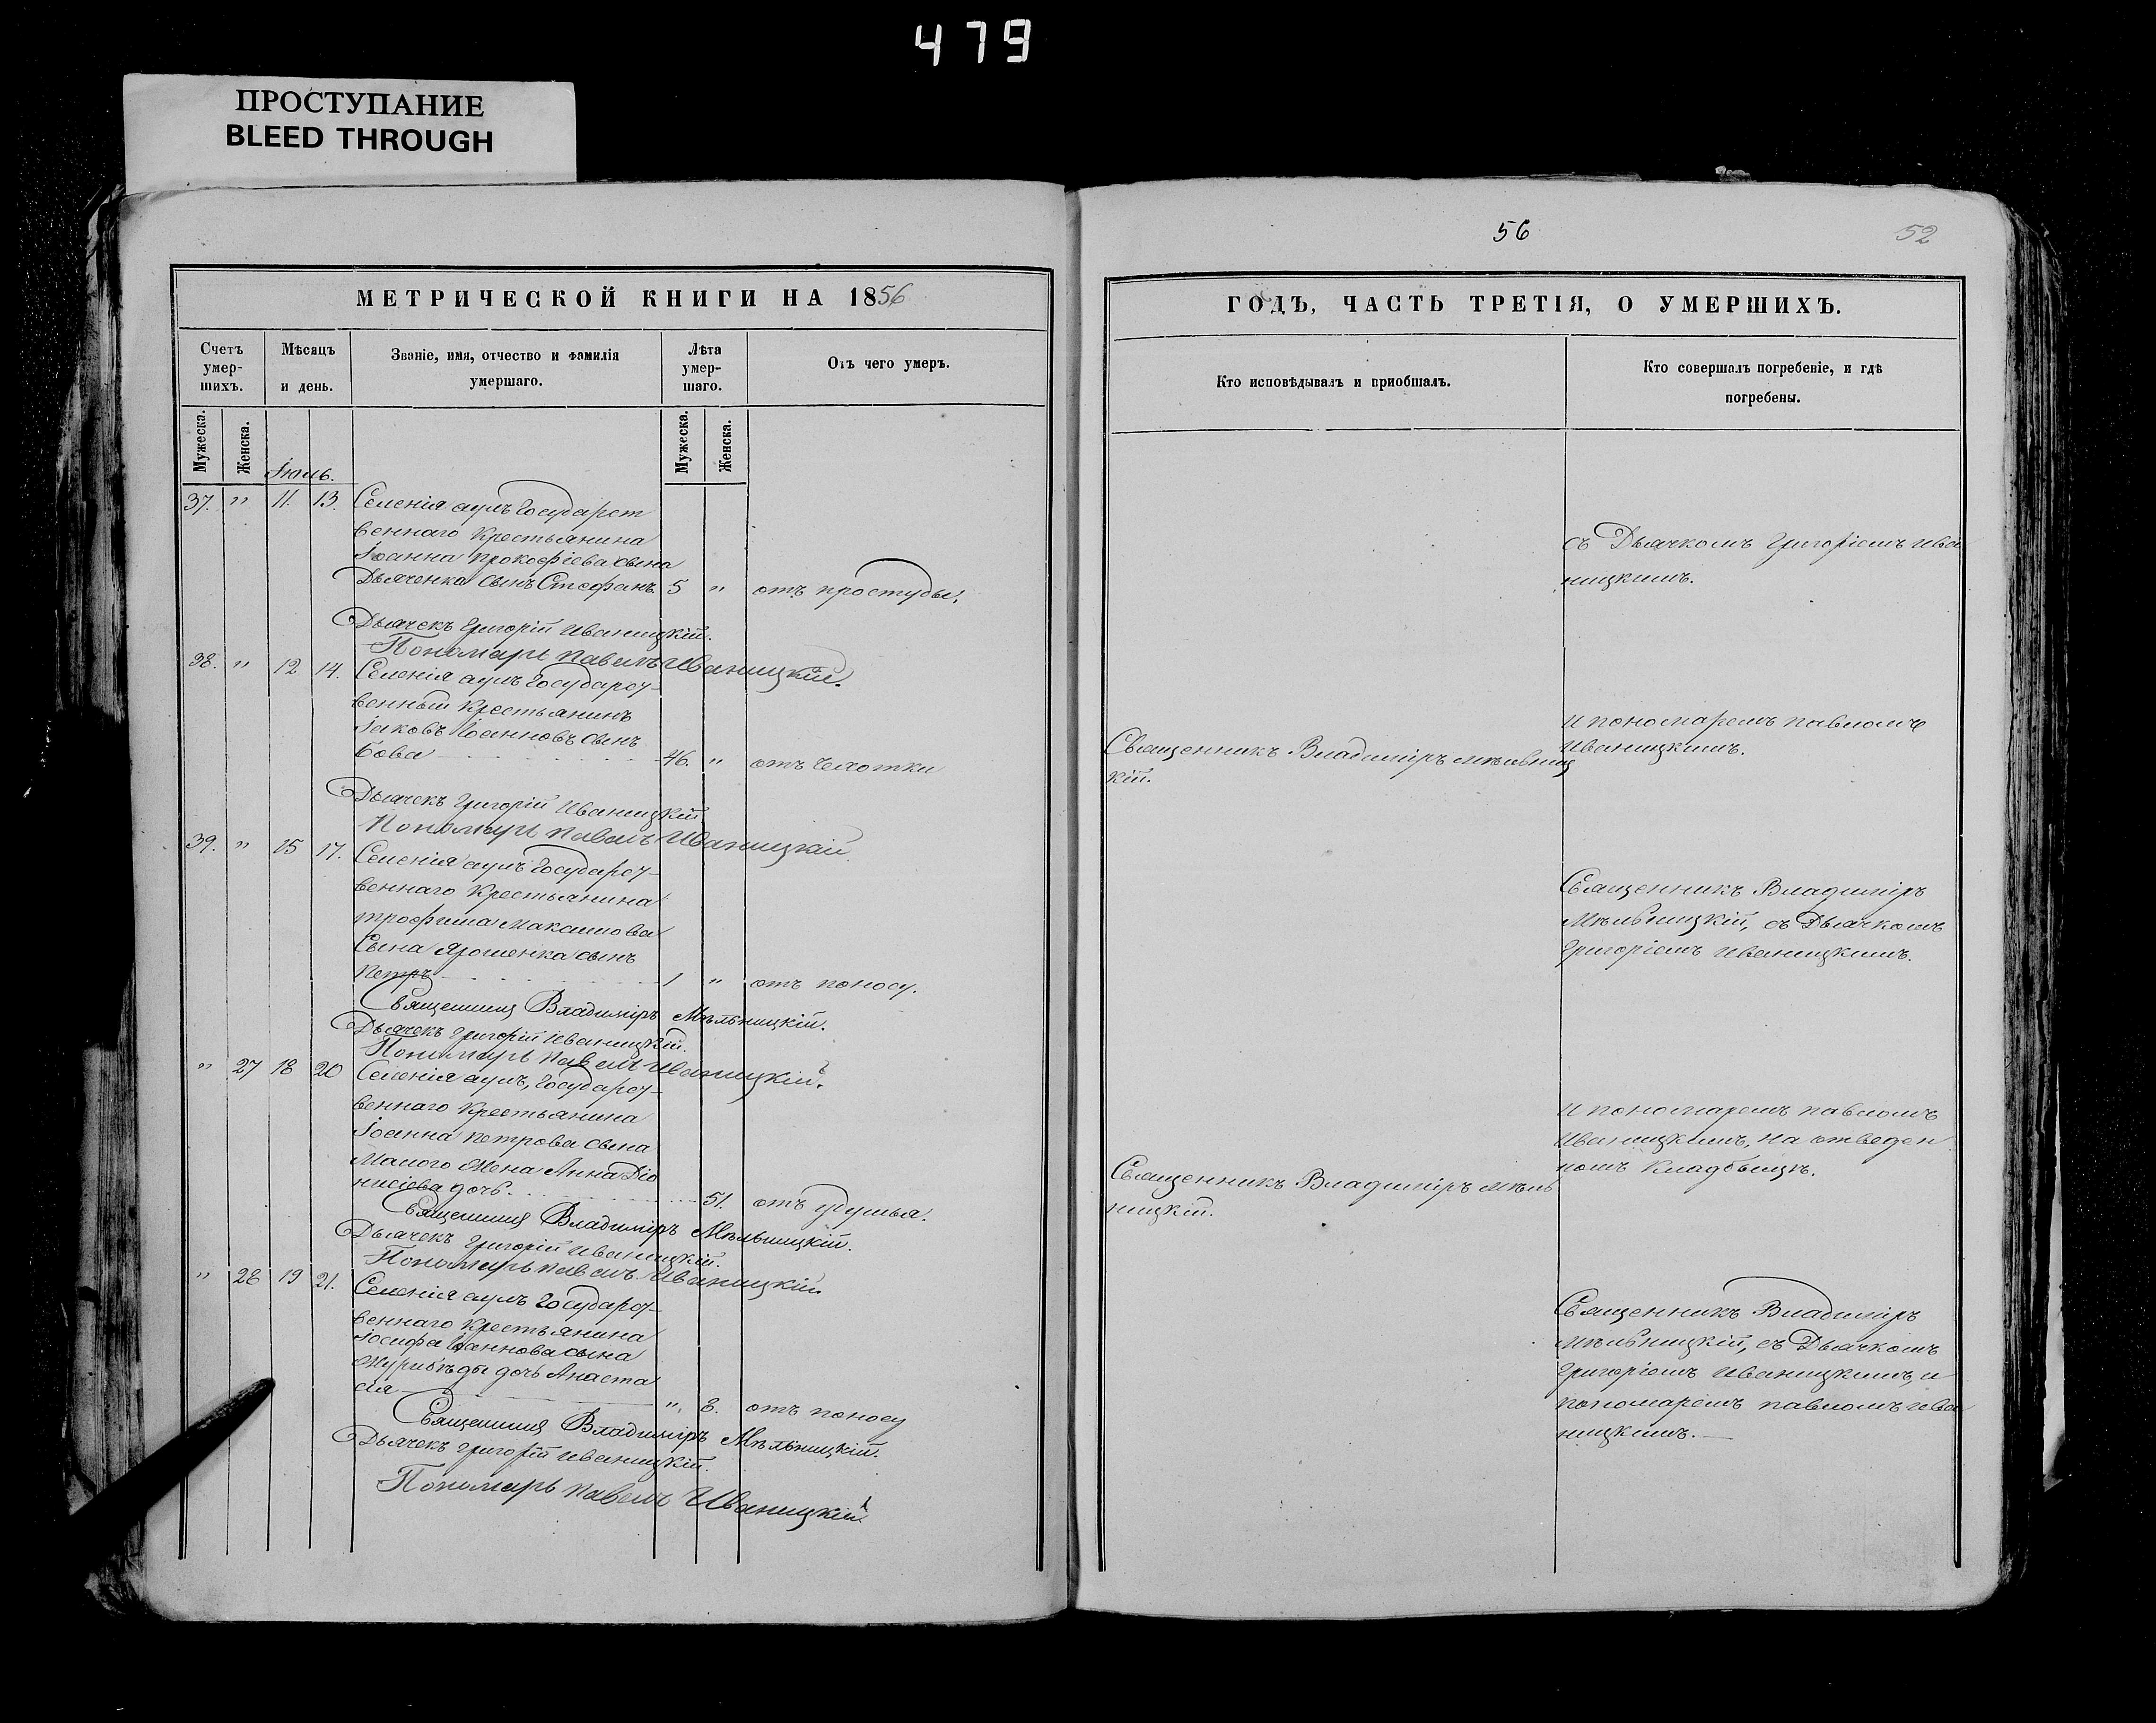 479
ПРОСТУПАНИЕ
BLEED THROUGH
МЕТРИЧЕСКОЙ КНИГИ НА 1856
Счетъ умер-шихъ.
Мѣсяцъ и день.
Званіе, имя, отчество и фамилія умершаго.
Лѣта умер-шаго.
Отъ чего умеръ.
Мужеска.
Женска.
Мужеска.
Женска.
Іюль.
37. " 11. 13. Селенія аулъ Государст
веннаго Крестьянина
Іоанна Прокофіева сына
Дьяченка сынъ Стефанъ. 5 " отъ простуды.
Дьячекъ Григорій Иваницкій.
Пономарь Павелъ Иваницкій.
38. " 12 14. Селенія аулъ Государст-
венный Крестьянинъ
Іаковъ Іоанновъ сынъ
Бова 46. " отъ чахотки
Дьячекъ Григорій Иваницкій
Пономарь Павелъ Иваницкій.
39. " 15 17. Селенія аулъ Государст-
веннаго Крестьянина
трофима Максимова
Сына Ярошенка сынъ
Петръ 1 " отъ поносу.
Священникъ Владиміръ Мѣльницкій.
Дьячекъ Григорій Иваницкій.
Пономарь Павелъ Иваницкій.
" 27 18 20 Селенія аулъ, Государст-
веннаго Крестьянина
Іоанна Петрова сына
Малого Жена Анна Діо
нисіева дочь. 51. отъ удушья.
Священникъ Владиміръ Мѣльницкій.
Дьячекъ Григорій Иваницкій.
Пономарь Павелъ Иваницкій.
" 28 19 21. Селенія аулъ Государст-
веннаго Крестьянина
Іосифа Іоаннова сына
дочь Анаста
сія ". 8. отъ поносу
Священникъ Владиміръ Мѣльницкій.
Дьячекъ Григорій Иваницкій.
Пономарь Павелъ Иваницкій
56
52
ГОДЪ, ЧАСТЬ ТРЕТІЯ, О УМЕРШИХЪ.
Кто исповѣдывалъ и приобщалъ.
Кто совершалъ погребеніе, и гдѣ
погребены.
съ Дьячкомъ Григоріемъ Ива
ницкимъ.
и пономаремъ павломъ
Иваницкимъ.
Священникъ Владиміръ Мѣльниц
кій.
Священникъ Владиміръ
Мѣльницкій, съ Дьячкомъ
Григоріемъ Иваницкимъ.
и пономаремъ павломъ
Иваницкимъ. на отведен
номъ Кладбищѣ.
Священникъ Владиміръ Мѣль
ницкій.
Священникъ Владиміръ
Мѣльницкій, съ Дьячкомъ
Григоріемъ Иваницкимъ, и
пономаремъ павломъ Ива
ницкимъ.